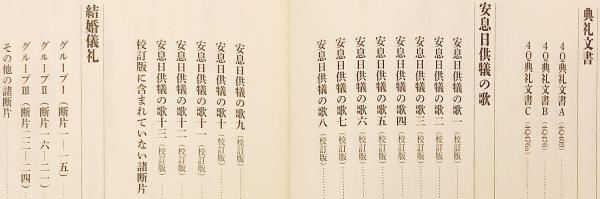 典礼文書
4Q典礼文書A (4Q409)
4Q典礼文書B (4Q476)
4Q典礼文書C (4Q476a)
安息日供犠の歌
安息日供犠の歌一(校訂版)
安息日供犠の歌二(校訂版)
安息日供犠の歌三(校訂版)
安息日供犠の歌四(校訂版)
安息日供犠の歌五(校訂版)
安息日供犠の歌六(校訂版)
安息日供犠の歌七(校訂版)
安息日供犠の歌八(校訂版)
安息日供犠の歌九(校訂版)
安息日供犠の歌十(校訂版)
安息日供犠の歌十一(校訂版)
安息日供犠の歌十二(校訂版)
安息日供犠の歌十三(校訂版)
校訂版に含まれていない諸断片
結婚儀礼
グループⅠ(断片一—一五)
グループⅡ(断片一六—二一)
グループⅢ(断片二二—二四)
その他の諸断片